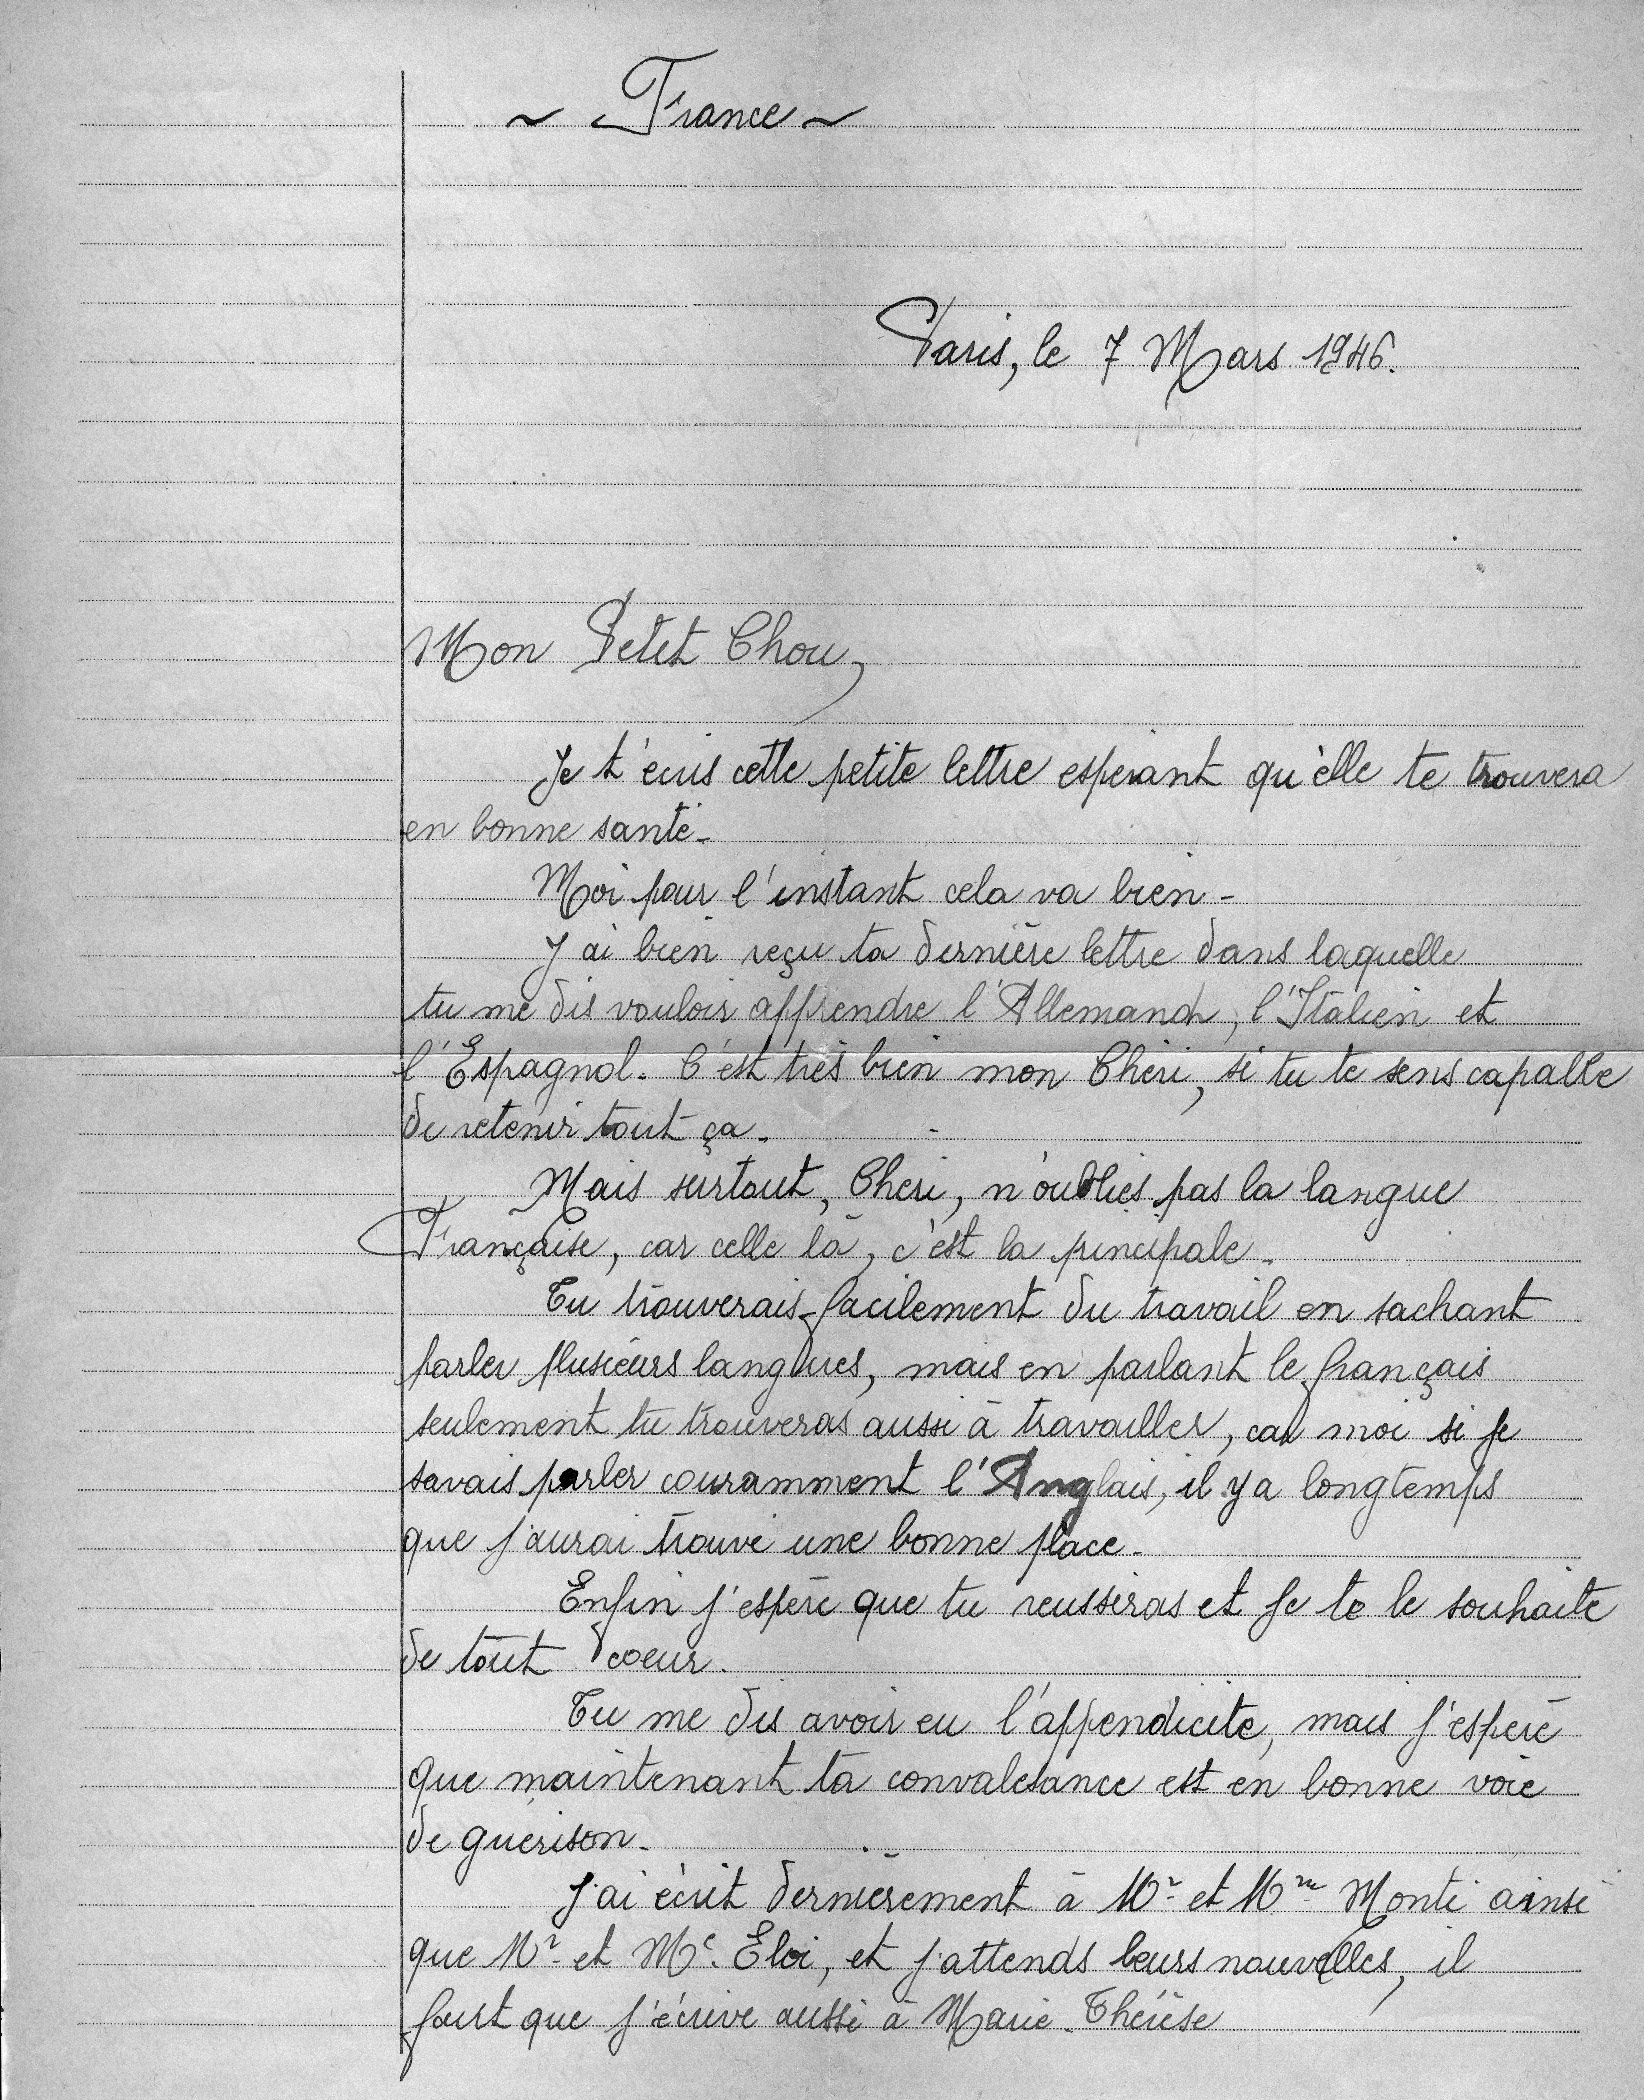 ~ France ~
Paris, le 7 Mars 1946.
Mon Petit Chou,
Je t'écris cette petite lettre espérant qu'elle te trouvera
en bonne santé-
Moi pour l'instant cela va bien-
J'ai bien reçu ta dernière lettre dans laquelle
tu me dis vouloir apprendre l'Allemand, l'Italien et
l'Espagnol. C'est très bien mon Chéri, si tu te sens capable
de retenir tout ça.
Mais surtout, Chéri, n'oublies pas la langue
Française, car celle là, c'est la principale.
Tu trouverais facilement du travail en sachant
parler plusieurs langues, mais en parlant le français
seulement tu trouveras aussi à travailler, car moi si je
savais parler couramment l'Anglais, il y a longtemps
que j'aurai trouvé une bonne place.
Enfin j'espère que tu reussiras et je te le souhaite
de tout coeur.
Tu me dis avoir eu l'appendicite, mais j'espère
que maintenant ta convalesance est en bonne voie
de guérison.
J'ai écrit dernièrement à Mr et Mme Monti ainsi
que Mr et Me Eloi, et j'attends leurs nouvelles, il
faut que j'écrive aussi à Marie-Thérèse